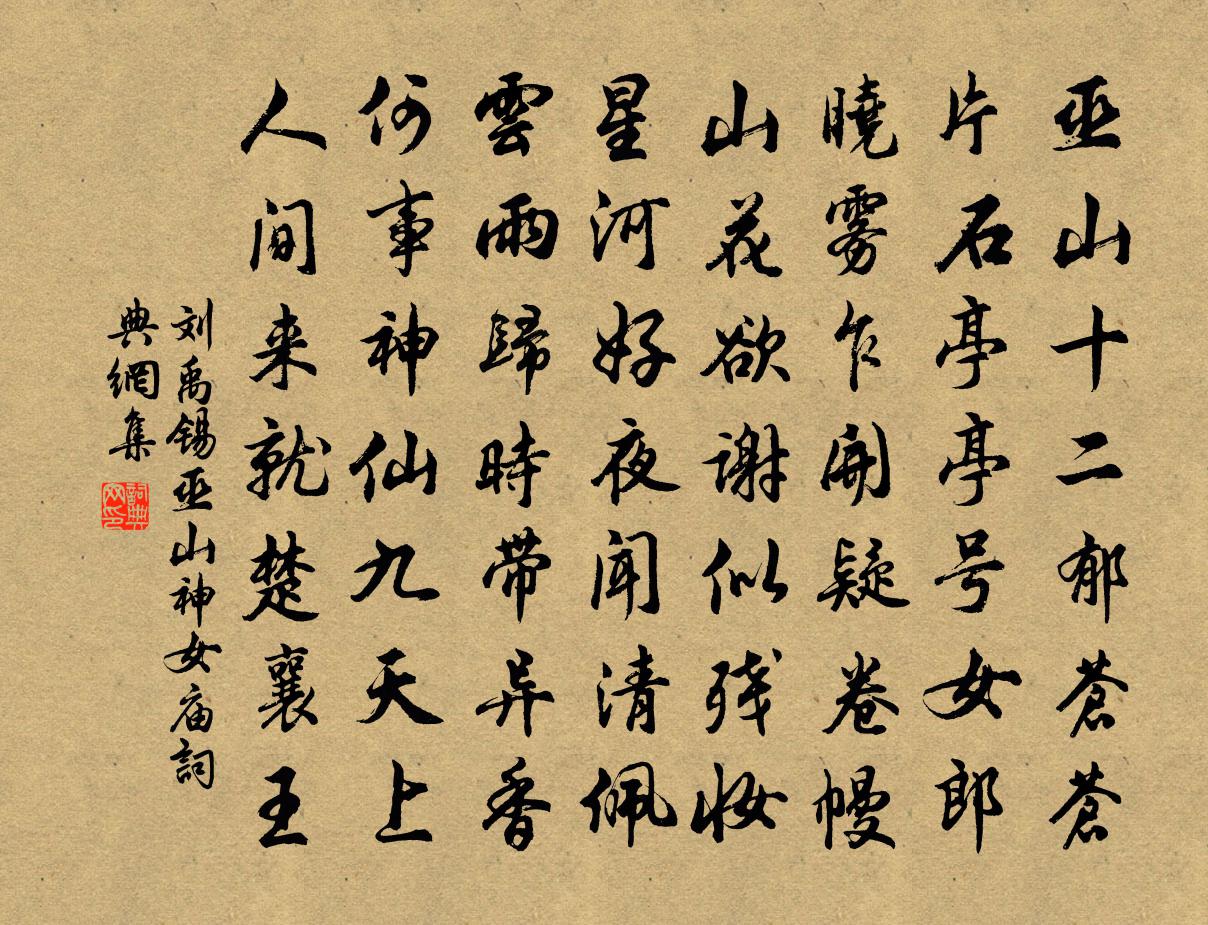 巫山十二郁蒼蒼
片石亭亭号女郎
曉雾乍開疑卷幔
山花欲谢似残妆
星河好夜闻清佩
雲雨歸時带异香
何事神仙九天上
人间来就楚襄王
刘禹锡巫山神女庙詞
典網集
詞典网印